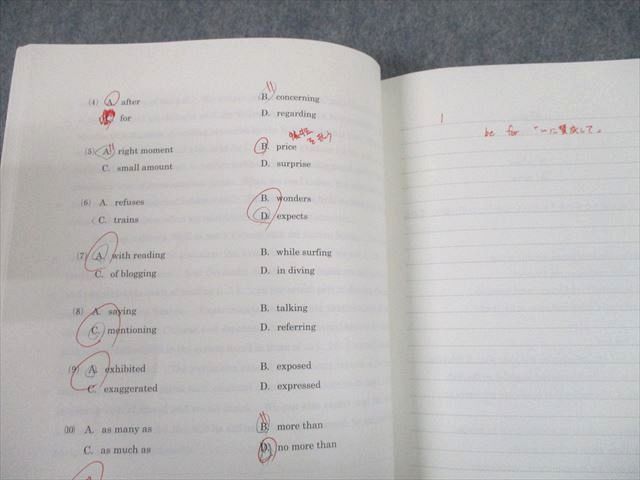 (4) A. after B. concerning
C. for D. regarding
(5) A. right moment B. price
C. small amount D. surprise
(6) A. refuses B. wonders
C. trains D. expects
(7) A. with reading B. while surfing
C. of blogging D. in diving
(8) A. saying B. talking
C. mentioning D. referring
(9) A. exhibited B. exposed
C. exaggerated D. expressed
(10) A. as many as B. more than
C. as much as D. no more than
be for 「〜に賛成して」